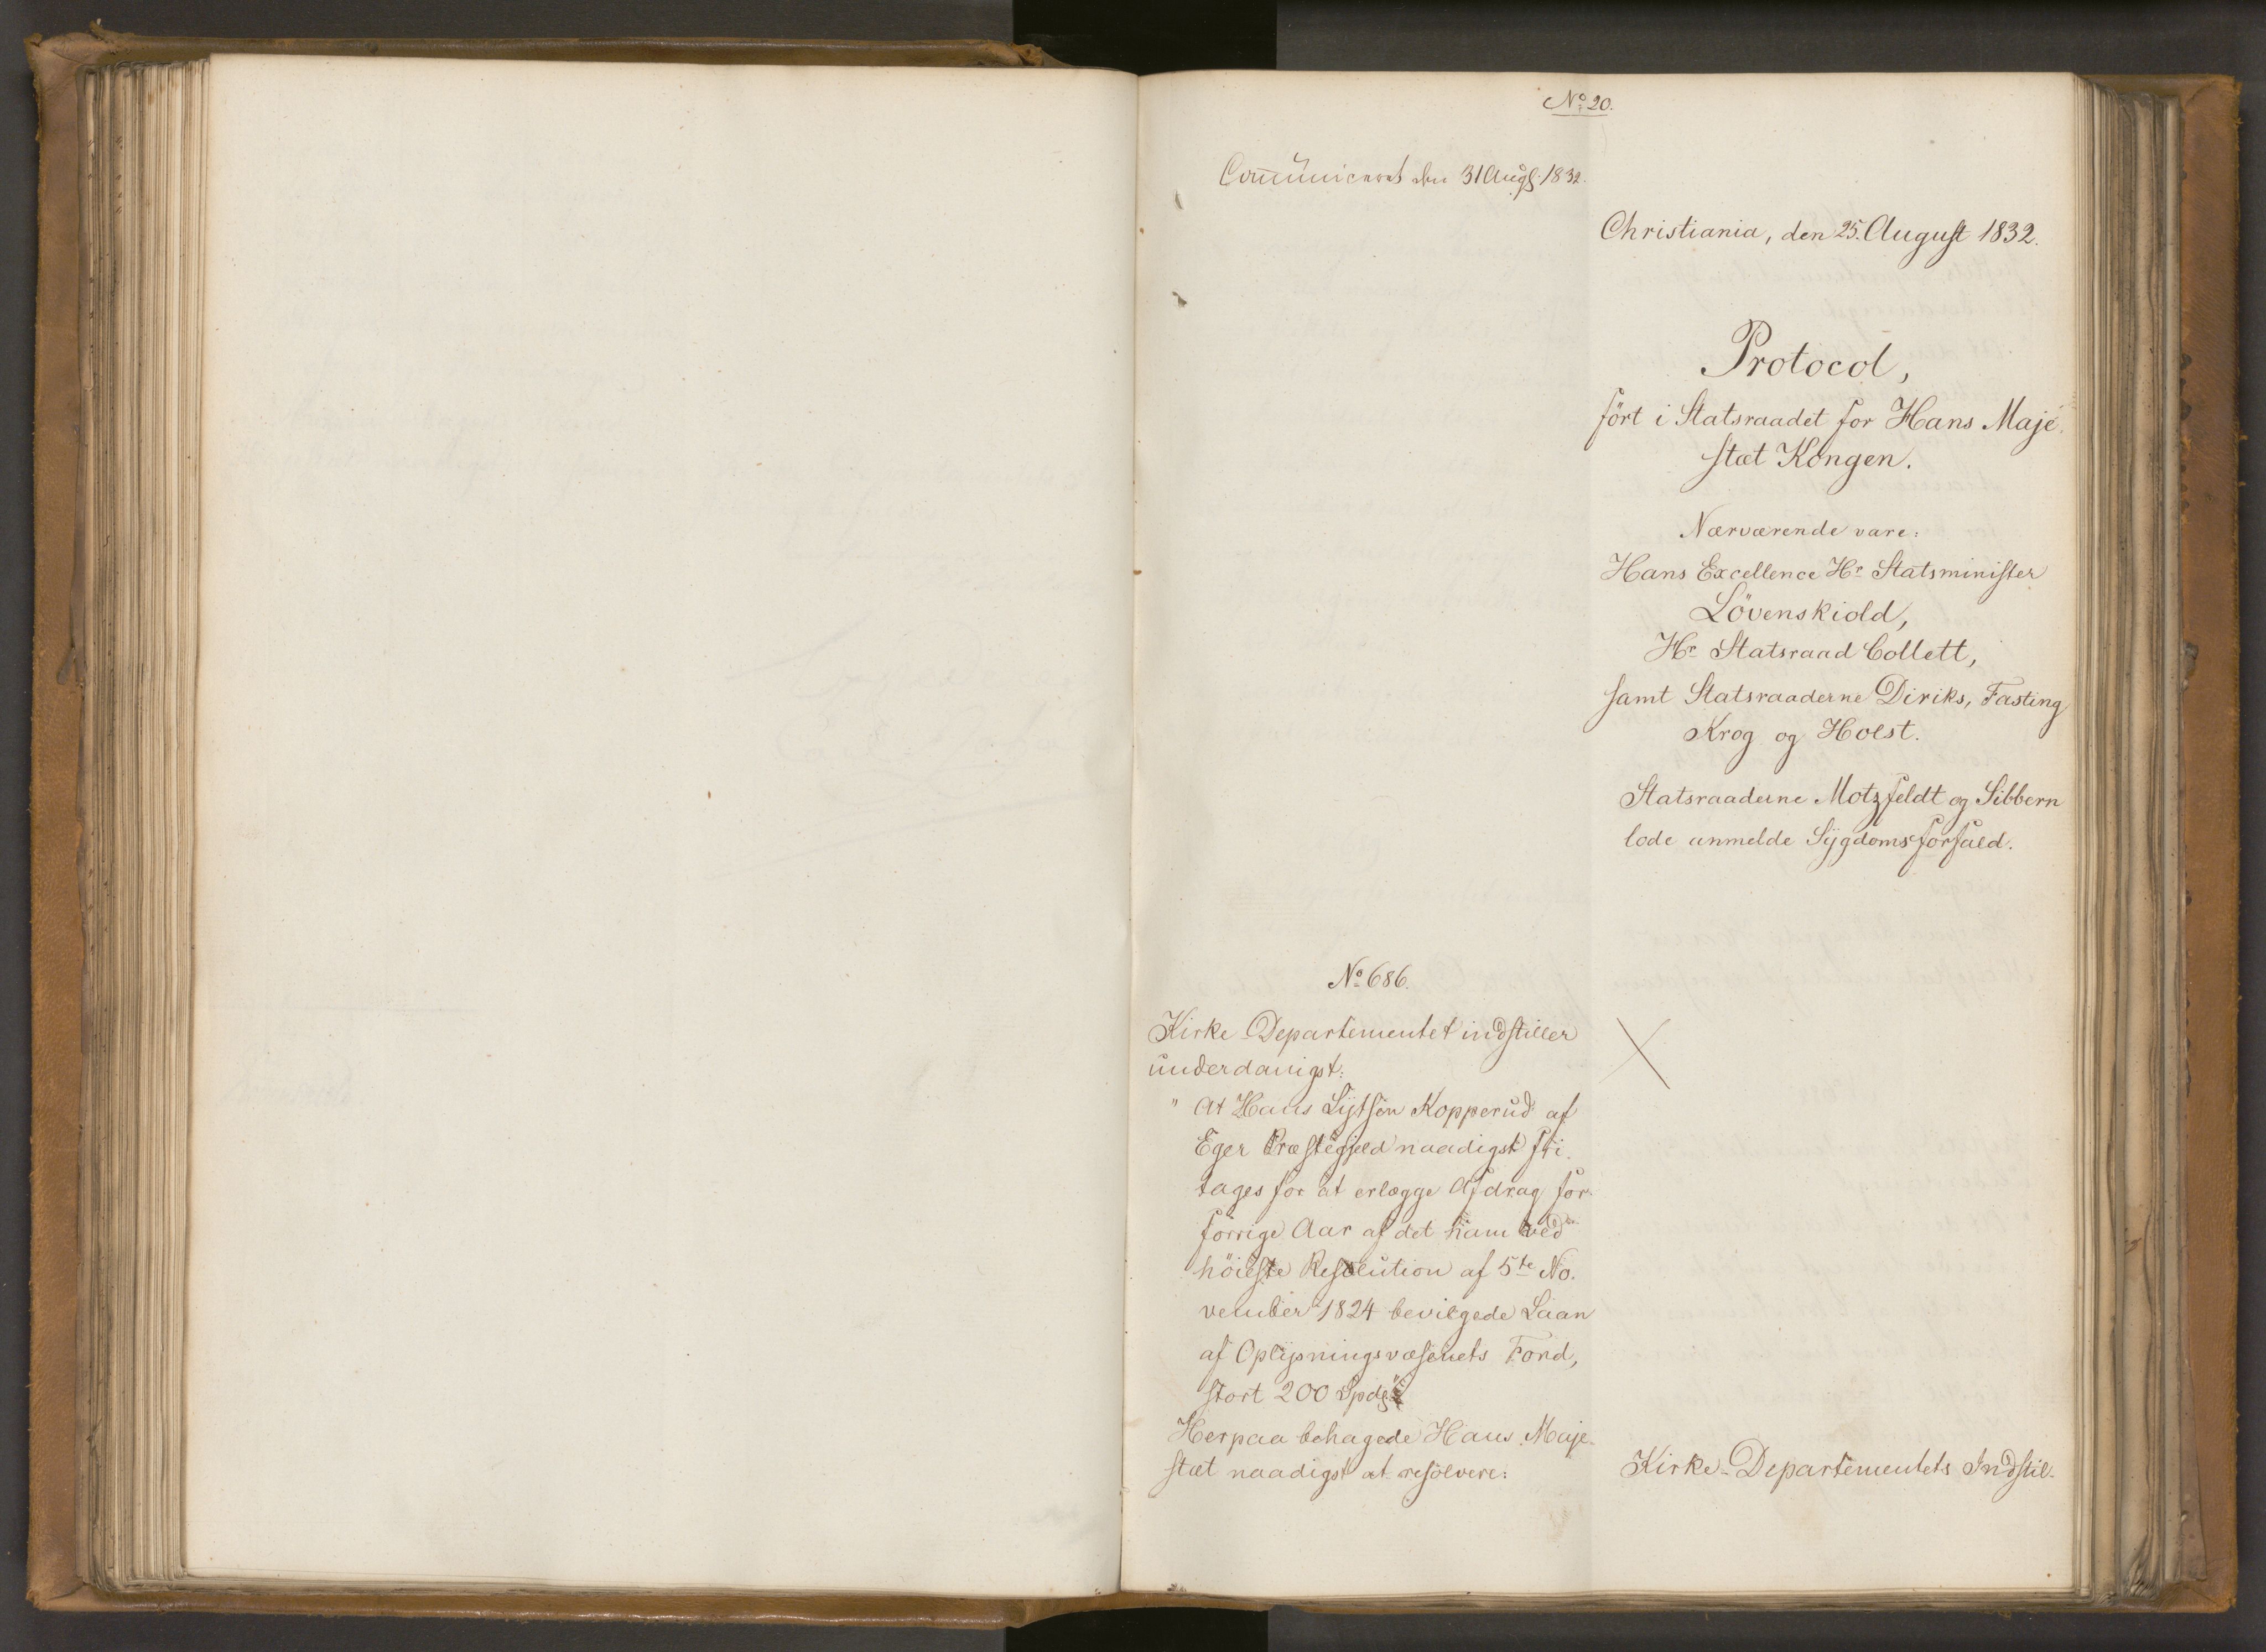 No 20.
Communiceret den 31 Augs. 1832.
Christiania, den 25. August 1832.
Protocol,
ført i Statsraadet for Hans Maje-
stæt Kongen.
Nærværende vare:
Hans Excellence Hr Statsminister
Lövenskiold,
Hr Statsraad Collett,
samt Statsraaderne Diriks, Fasting
Krog og Holst.
Statsraaderne Motzfeldt og Sibbern
lode anmelde Sÿgdomsforfald.
No 686.
Kirke-Departementet indstiller
underdanigst:
" At Hans Kopperud af
Eger Præstegjeld naadigst fri-
tages for at erlægge Afdrag for
forrige Aar af det ham ved
höieste Resolution af 5te No-
vember 1824 bevilgede Laan
af Oplÿsningsvæsenets Fond,
stort 200 Spd."
Herpaa behagede Hans Maje-
stæt naadigst at resolvere:
Kirke-Departementets Indstil-